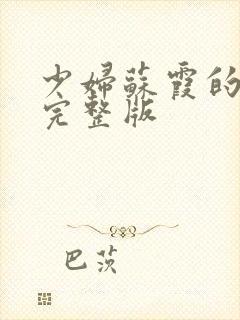 少婦蘇霞的
完整版
巴茨